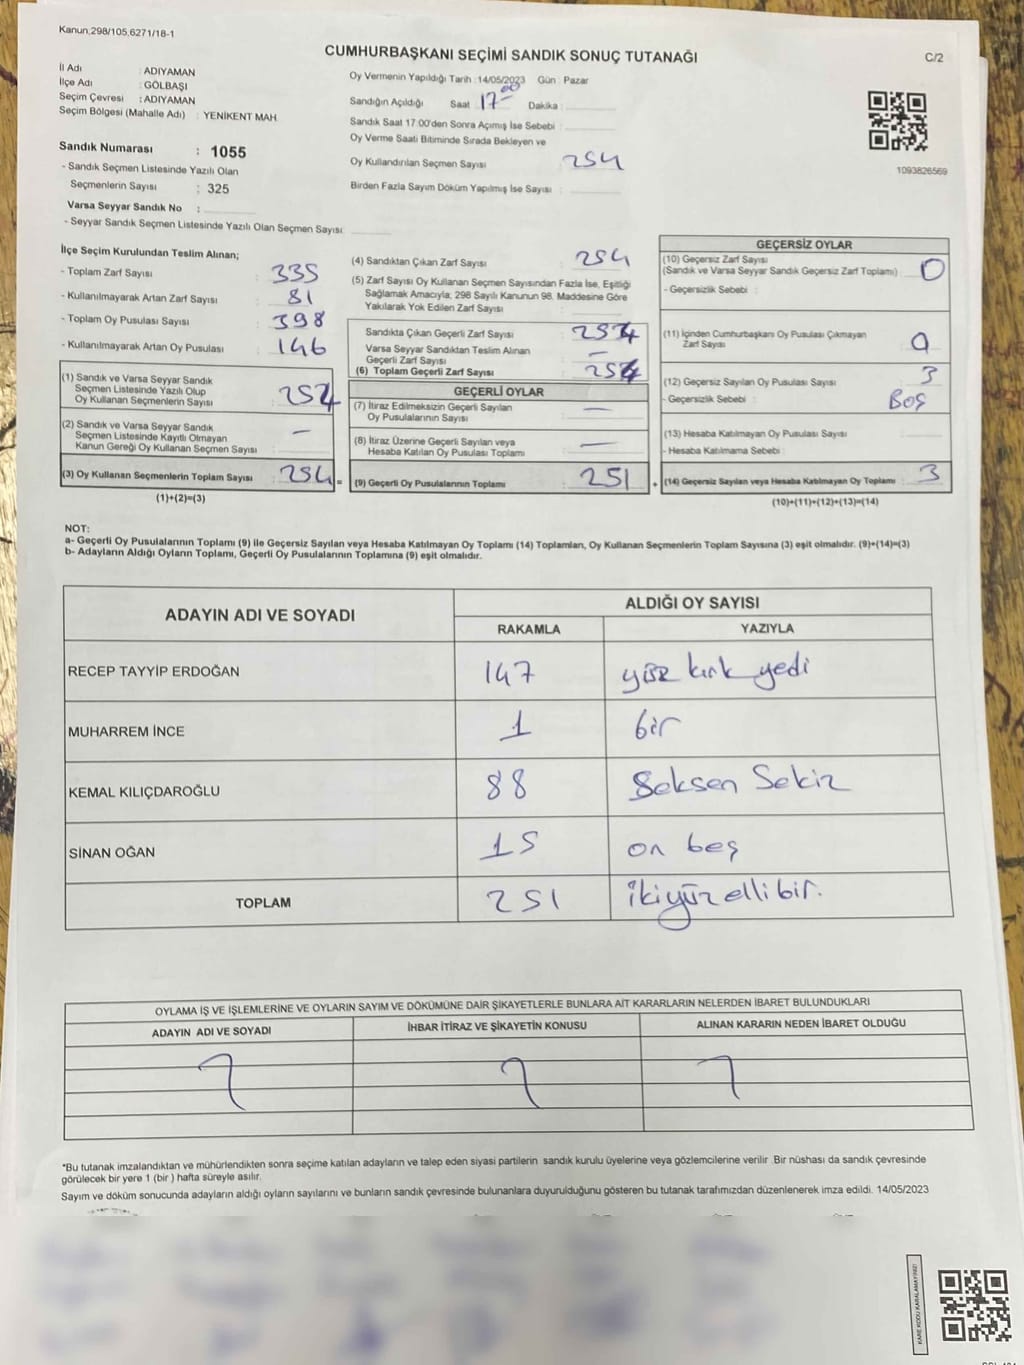 Kanun,298/105,6271/18-1
CUMHURBAŞKANI SEÇİMİ SANDIK SONUÇ TUTANAĞI
C/2
İl Adı : ADIYAMAN
İlçe Adı : GÖLBAŞI
Seçim Çevresi : ADIYAMAN
Seçim Bölgesi (Mahalle Adı) : YENİKENT MAH.
Oy Vermenin Yapıldığı Tarih : 14/05/2023 Gün : Pazar
Sandığın Açıldığı Saat 17 00 Dakika :
Sandık Saat 17:00'den Sonra Açımış İse Sebebi :
Oy Verme Saati Bitiminde Sırada Bekleyen ve
Oy Kullandırılan Seçmen Sayısı 254
Birden Fazla Sayım Döküm Yapılmış İse Sayısı :
1093826569
Sandık Numarası : 1055
- Sandık Seçmen Listesinde Yazılı Olan
Seçmenlerin Sayısı : 325
Varsa Seyyar Sandık No :
- Seyyar Sandık Seçmen Listesinde Yazılı Olan Seçmen Sayısı:
İlçe Seçim Kurulundan Teslim Alınan;
- Toplam Zarf Sayısı : 335
- Kullanılmayarak Artan Zarf Sayısı : 81
- Toplam Oy Pusulası Sayısı : 398
- Kullanılmayarak Artan Oy Pusulası : 146
(1) Sandık ve Varsa Seyyar Sandık
Seçmen Listesinde Yazılı Olup
Oy Kullanan Seçmenlerin Sayısı : 254
(2) Sandık ve Varsa Seyyar Sandık
Seçmen Listesinde Kayıtlı Olmayan
Kanun Gereği Oy Kullanan Seçmen Sayısı : —
(3) Oy Kullanan Seçmenlerin Toplam Sayısı : 254 =
(1)+(2)=(3)
(4) Sandıktan Çıkan Zarf Sayısı : 254
(5) Zarf Sayısı Oy Kullanan Seçmen Sayısından Fazla İse, Eşitliği
Sağlamak Amacıyla; 298 Sayılı Kanunun 98. Maddesine Göre
Yakılarak Yok Edilen Zarf Sayısı :
Sandıkta Çıkan Geçerli Zarf Sayısı : 254
Varsa Seyyar Sandıktan Teslim Alınan
Geçerli Zarf Sayısı : —
(6) Toplam Geçerli Zarf Sayısı : 254
GEÇERLİ OYLAR
(7) İtiraz Edilmeksizin Geçerli Sayılan
Oy Pusulalarının Sayısı : —
(8) İtiraz Üzerine Geçerli Sayılan veya
Hesaba Katılan Oy Pusulası Toplamı : —
(9) Geçerli Oy Pusulalarının Toplamı : 251 +
GEÇERSİZ OYLAR
(10) Geçersiz Zarf Sayısı
(Sandık ve Varsa Seyyar Sandık Geçersiz Zarf Toplamı) : 0
- Geçersizlik Sebebi :
(11) İçinden Cumhurbaşkanı Oy Pusulası Çıkmayan
Zarf Sayısı : 0
(12) Geçersiz Sayılan Oy Pusulası Sayısı : 3
- Geçersizlik Sebebi : Boş
(13) Hesaba Katılmayan Oy Pusulası Sayısı :
- Hesaba Katılmama Sebebi :
(14) Geçersiz Sayılan veya Hesaba Katılmayan Oy Toplamı : 3
(10)+(11)+(12)+(13)=(14)
NOT:
a- Geçerli Oy Pusulalarının Toplamı (9) ile Geçersiz Sayılan veya Hesaba Katılmayan Oy Toplamı (14) Toplamları, Oy Kullanan Seçmenlerin Toplam Sayısına (3) eşit olmalıdır. (9)+(14)=(3)
b- Adayların Aldığı Oyların Toplamı, Geçerli Oy Pusulalarının Toplamına (9) eşit olmalıdır.
ADAYIN ADI VE SOYADI
ALDIĞI OY SAYISI
RAKAMLA YAZIYLA
RECEP TAYYİP ERDOĞAN 147 yüz kırk yedi
MUHARREM İNCE 1 bir
KEMAL KILIÇDAROĞLU 88 Seksen Sekiz
SİNAN OĞAN 15 on beş
TOPLAM 251 ikiyüz ellibir.
OYLAMA İŞ VE İŞLEMLERİNE VE OYLARIN SAYIM VE DÖKÜMÜNE DAİR ŞİKAYETLERLE BUNLARA AİT KARARLARIN NELERDEN İBARET BULUNDUKLARI
ADAYIN ADI VE SOYADI İHBAR İTİRAZ VE ŞİKAYETİN KONUSU ALINAN KARARIN NEDEN İBARET OLDUĞU
*Bu tutanak imzalandıktan ve mühürlendikten sonra seçime katılan adayların ve talep eden siyasi partilerin sandık kurulu üyelerine veya gözlemcilerine verilir. Bir nüshası da sandık çevresinde
görülecek bir yere 1 (bir ) hafta süreyle asılır.
Sayım ve döküm sonucunda adayların aldığı oyların sayılarını ve bunların sandık çevresinde bulunanlara duyurulduğunu gösteren bu tutanak tarafımızdan düzenlenerek imza edildi. 14/05/2023
KARE KODU KARALAMAYINIZ!